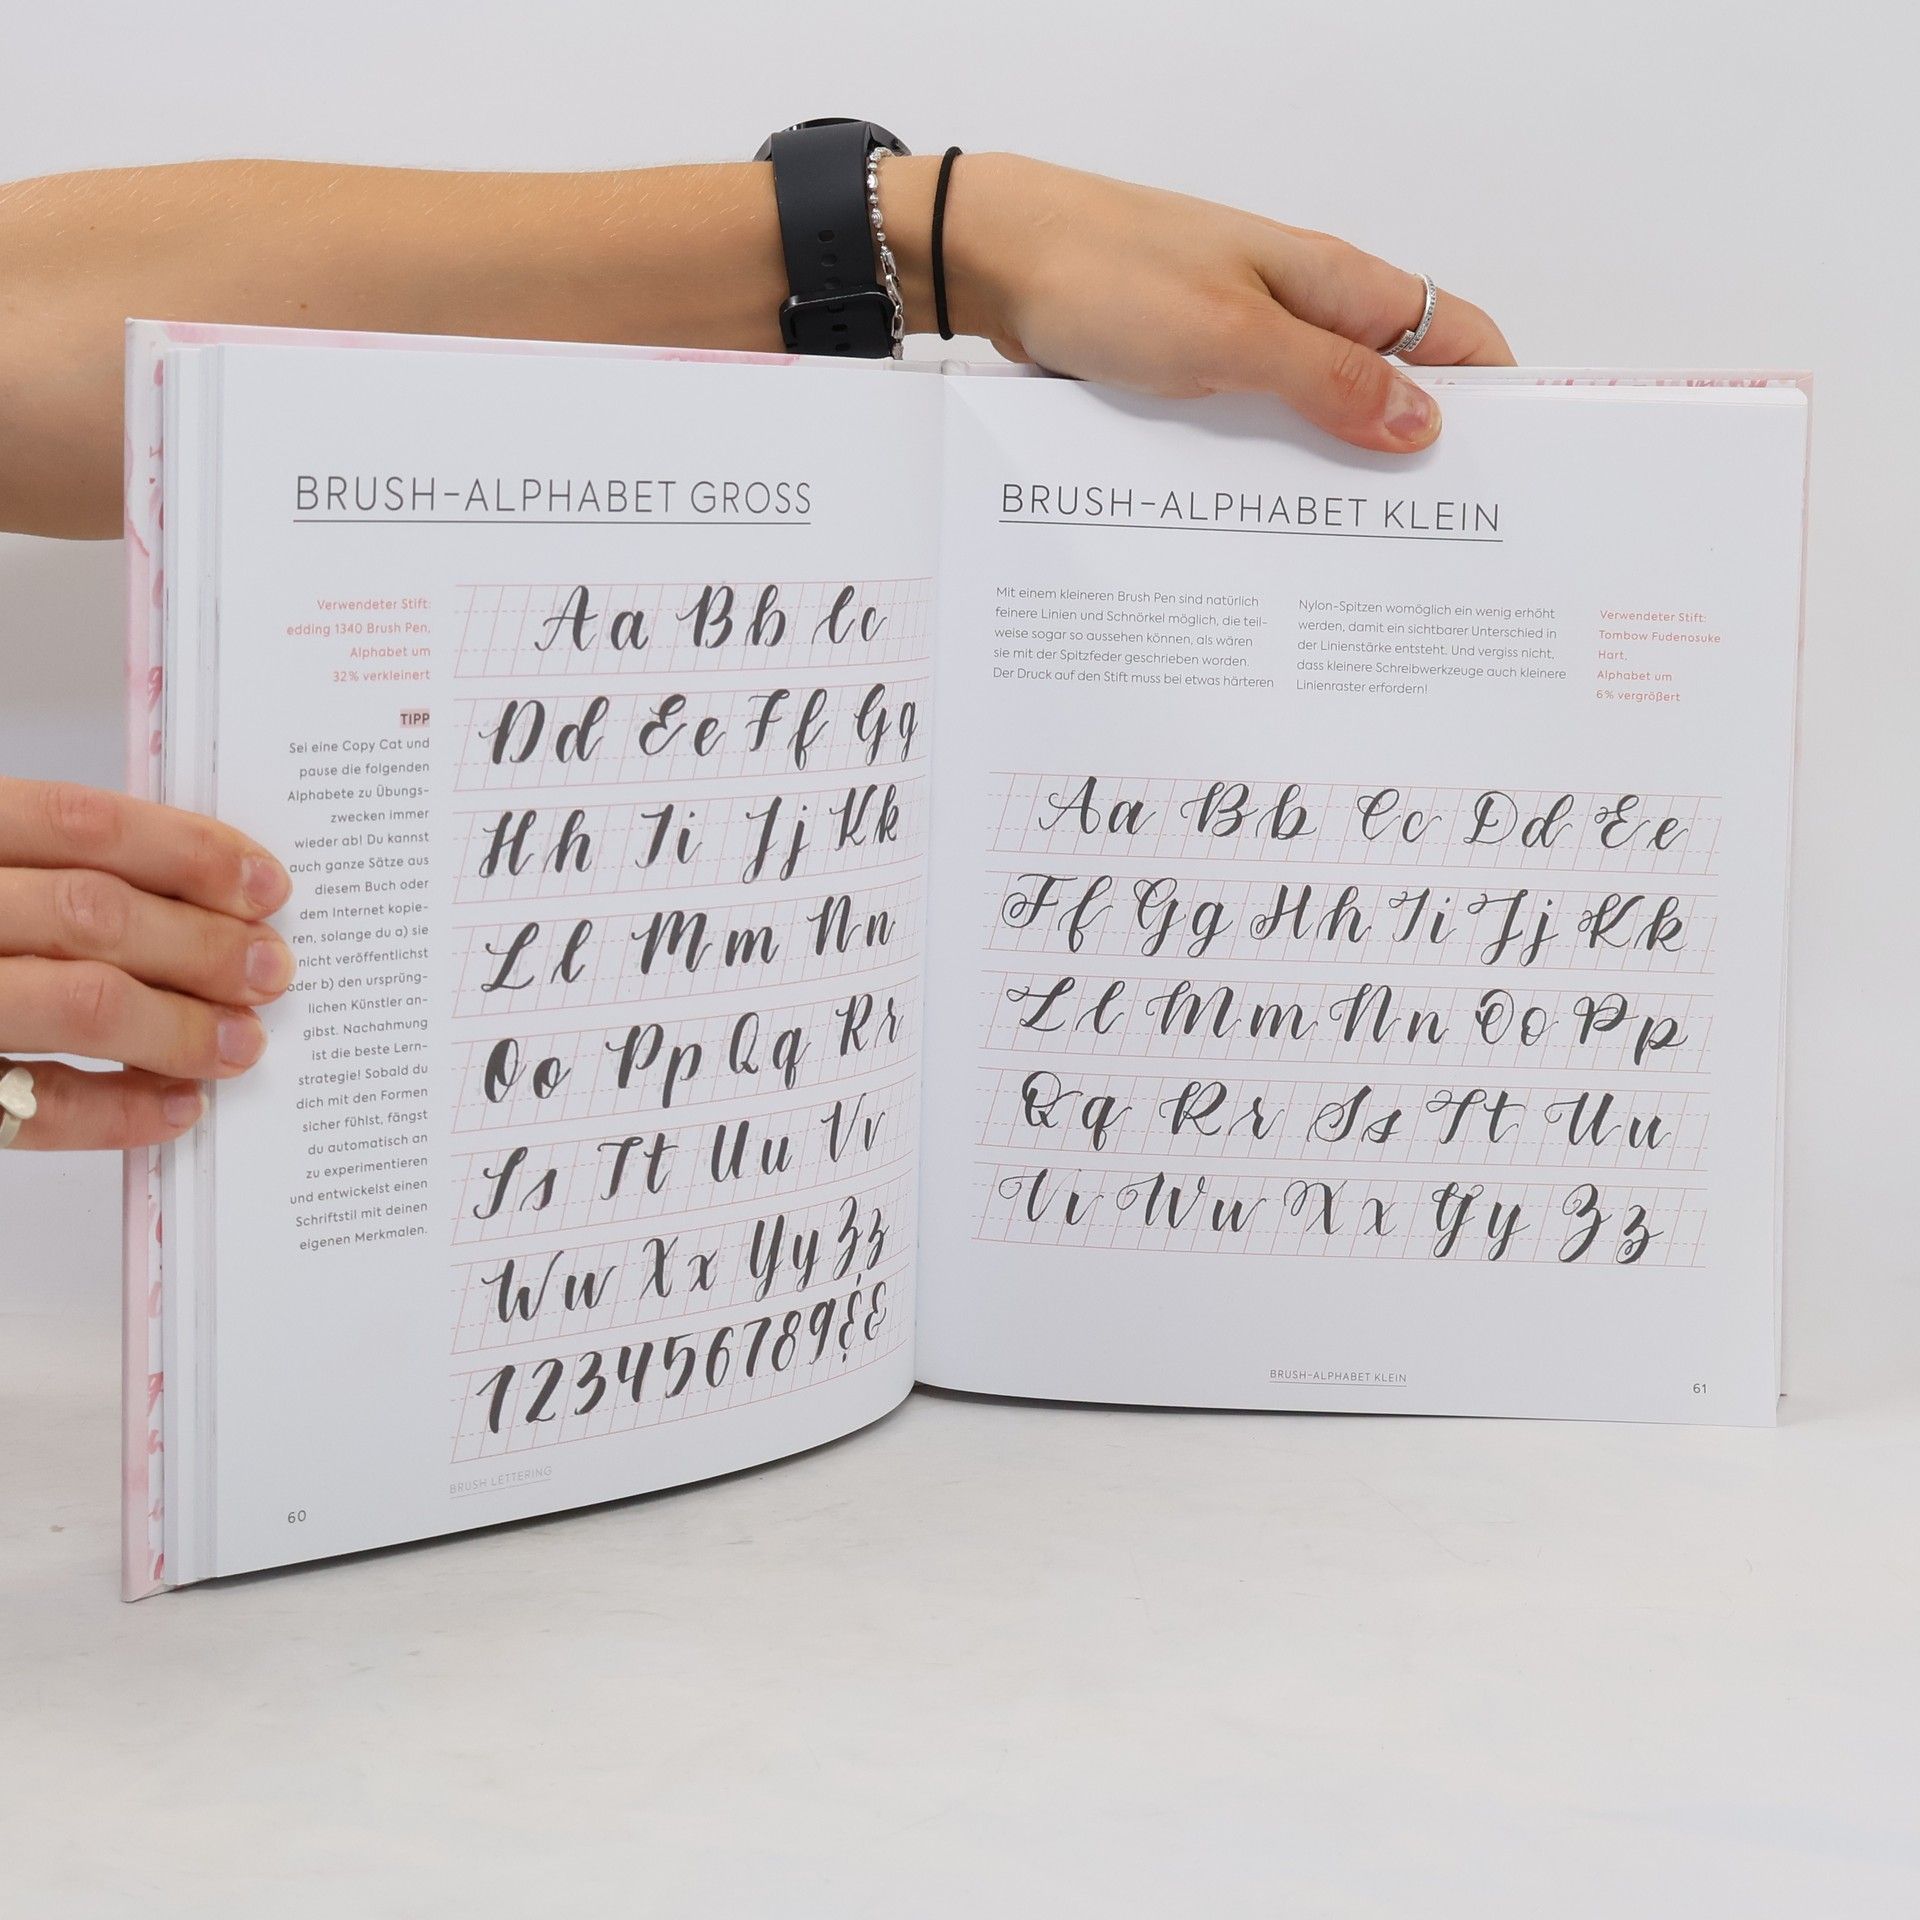 BRUSH-ALPHABET GROSS
Verwendeter Stift:
edding 1340 Brush Pen,
Alphabet um
32% verkleinert
TIPP
Sei eine Copy Cat und
pause die folgenden
Alphabete zu Übungs-
zwecken immer
wieder ab! Du kannst
auch ganze Sätze aus
diesem Buch oder
dem Internet kopie-
ren, solange du a) sie
nicht veröffentlichst
oder b) den ursprüng-
lichen Künstler an-
gibst. Nachahmung
ist die beste Lern-
strategie! Sobald du
dich mit den Formen
sicher fühlst, fängst
du automatisch an
zu experimentieren
und entwickelst einen
Schriftstil mit deinen
eigenen Merkmalen.
Aa Bb Cc
Dd Ee Ff Gg
Hh Ii Jj Kk
Ll Mm Nn
Oo Pp Qq Rr
Ss Tt Uu Vv
Ww Xx Yy Zz
123456789&&
BRUSH LETTERING
60
BRUSH-ALPHABET KLEIN
Mit einem kleineren Brush Pen sind natürlich
feinere Linien und Schnörkel möglich, die teil-
weise sogar so aussehen können, als wären
sie mit der Spitzfeder geschrieben worden.
Der Druck auf den Stift muss bei etwas härteren
Nylon-Spitzen womöglich ein wenig erhöht
werden, damit ein sichtbarer Unterschied in
der Linienstärke entsteht. Und vergiss nicht,
dass kleinere Schreibwerkzeuge auch kleinere
Linienraster erfordern!
Verwendeter Stift:
Tombow Fudenosuke
Hart,
Alphabet um
6% vergrößert
Aa Bb Cc Dd Ee
Ff Gg Hh Ii Jj Kk
Ll Mm Nn Oo Pp
Qq Rr Ss Tt Uu
Vv Ww Xx Yy Zz
BRUSH-ALPHABET KLEIN
61